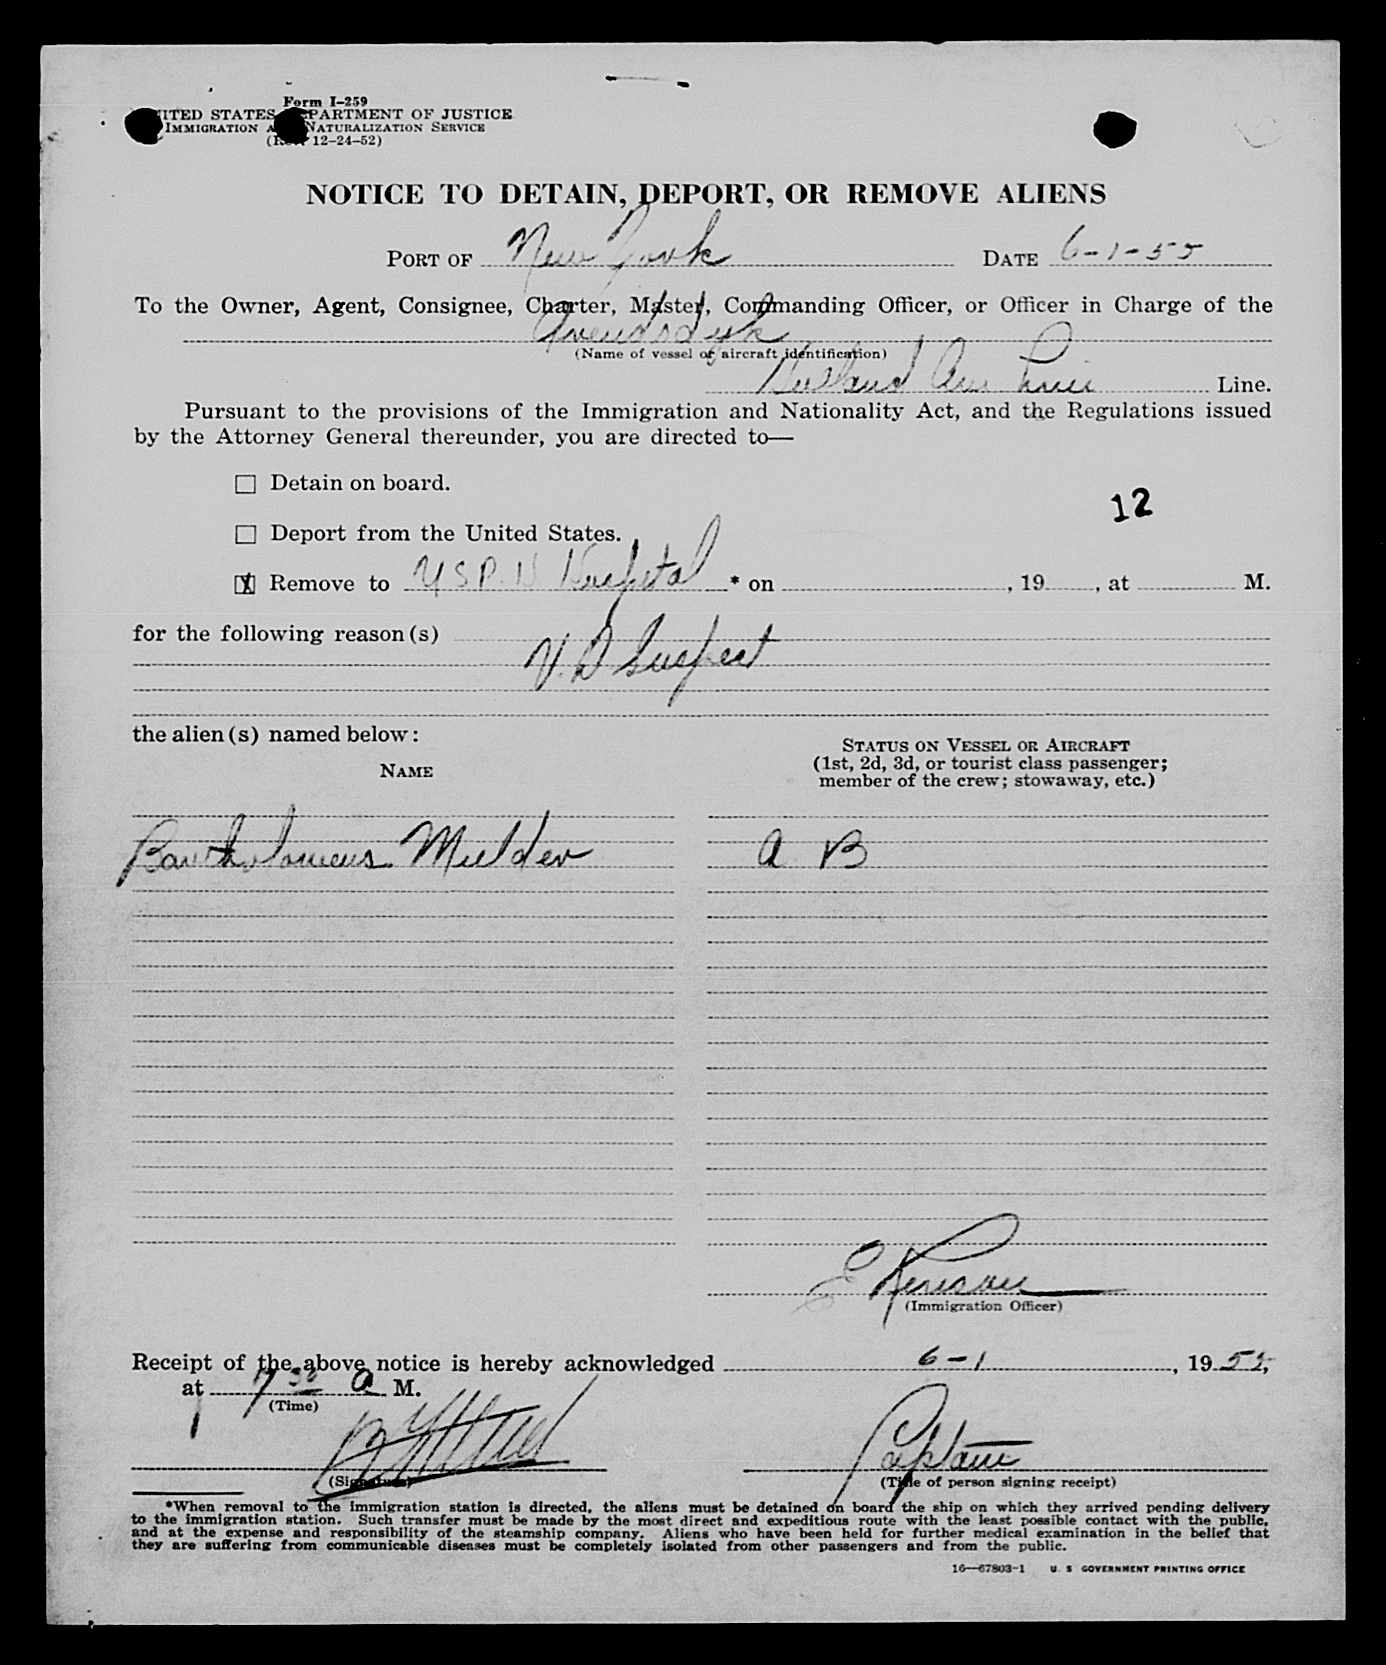 Form I-259
UNITED STATES DEPARTMENT OF JUSTICE
IMMIGRATION AND NATURALIZATION SERVICE
(Rev. 12-24-52)
NOTICE TO DETAIN, DEPORT, OR REMOVE ALIENS
PORT OF New York DATE 6-1-55
To the Owner, Agent, Consignee, Charter, Master, Commanding Officer, or Officer in Charge of the
Arendsdyk
(Name of vessel or aircraft identification)
Holland Am Line Line.
Pursuant to the provisions of the Immigration and Nationality Act, and the Regulations issued
by the Attorney General thereunder, you are directed to—
☐ Detain on board.
12
☐ Deport from the United States.
☒ Remove to USP.H Hospital * on , 19 , at M.
for the following reason(s)
V. D Suspect
the alien(s) named below:
NAME
STATUS ON VESSEL OR AIRCRAFT
(1st, 2d, 3d, or tourist class passenger;
member of the crew; stowaway, etc.)
Bartholomeus Mulder A B
E
(Immigration Officer)
Receipt of the above notice is hereby acknowledged 6-1, 1955,
at 7 30 A M.
(Time)
Captain
(Signature) (Title of person signing receipt)
*When removal to the immigration station is directed, the aliens must be detained on board the ship on which they arrived pending delivery
to the immigration station. Such transfer must be made by the most direct and expeditious route with the least possible contact with the public,
and at the expense and responsibility of the steamship company. Aliens who have been held for further medical examination in the belief that
they are suffering from communicable diseases must be completely isolated from other passengers and from the public.
16—67803-1 U. S. GOVERNMENT PRINTING OFFICE